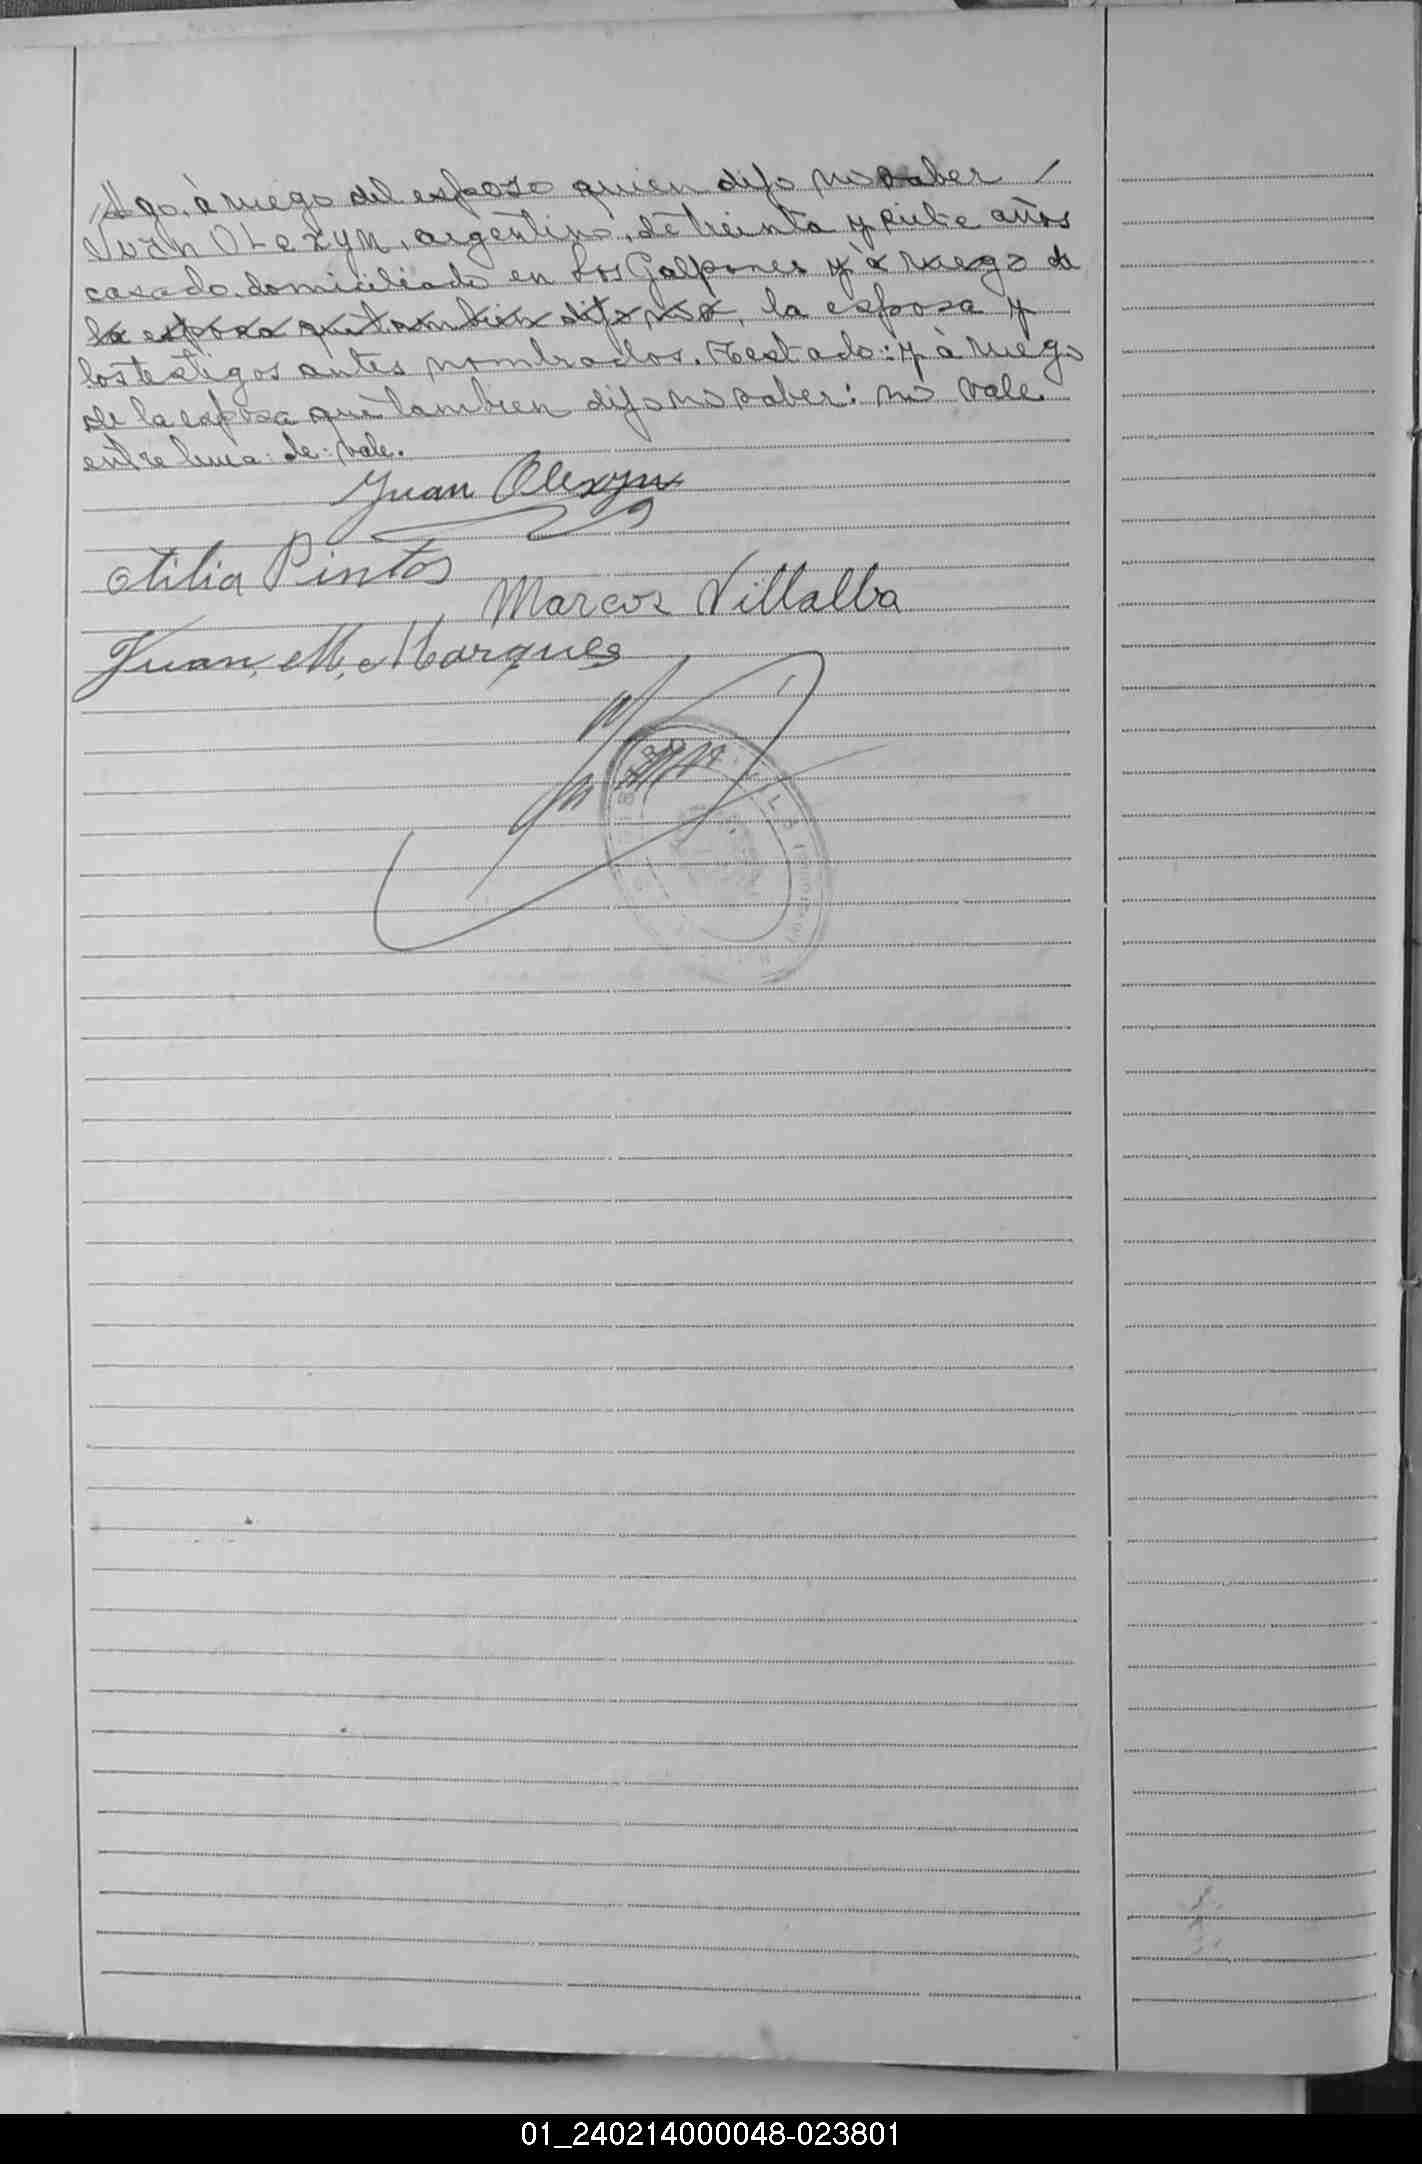 //go, à ruego del esposo quien dijo no saber /
Juan OLEXYN, argentino, de treinta y siete años
casado, domiciliado en Los Galpones y à ruego de
la esposa que tambien dijo no s, la esposa y
los testigos antes nombrados. Testado: y à ruego
de la esposa que tambien dijo no saber: no vale
entre linea: de: vale.
Juan Olexyn
Otilia Pintos
Marcos Villalba
Juan, M, Marques
01_240214000048-023801